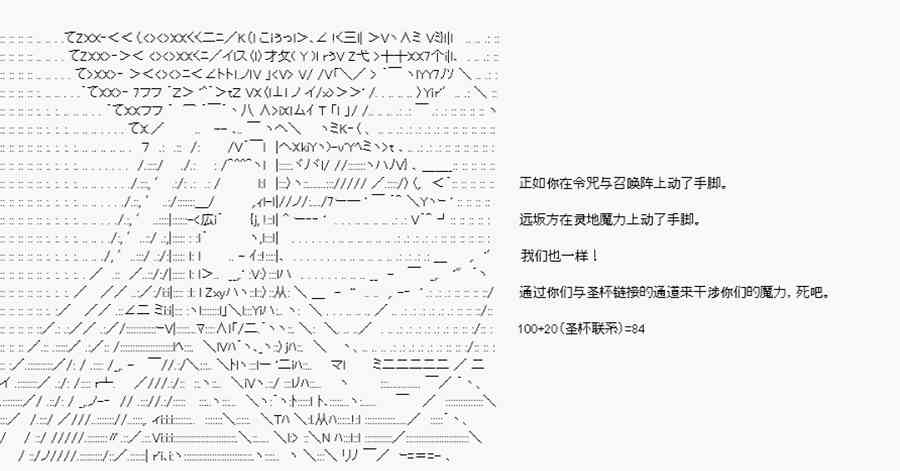 正如你在令咒与召唤阵上动了手脚。
远坂方在灵地魔力上动了手脚。
我们也一样！
通过你们与圣杯链接的通道来干涉你们的魔力，死吧。
100+20（圣杯联系）=84